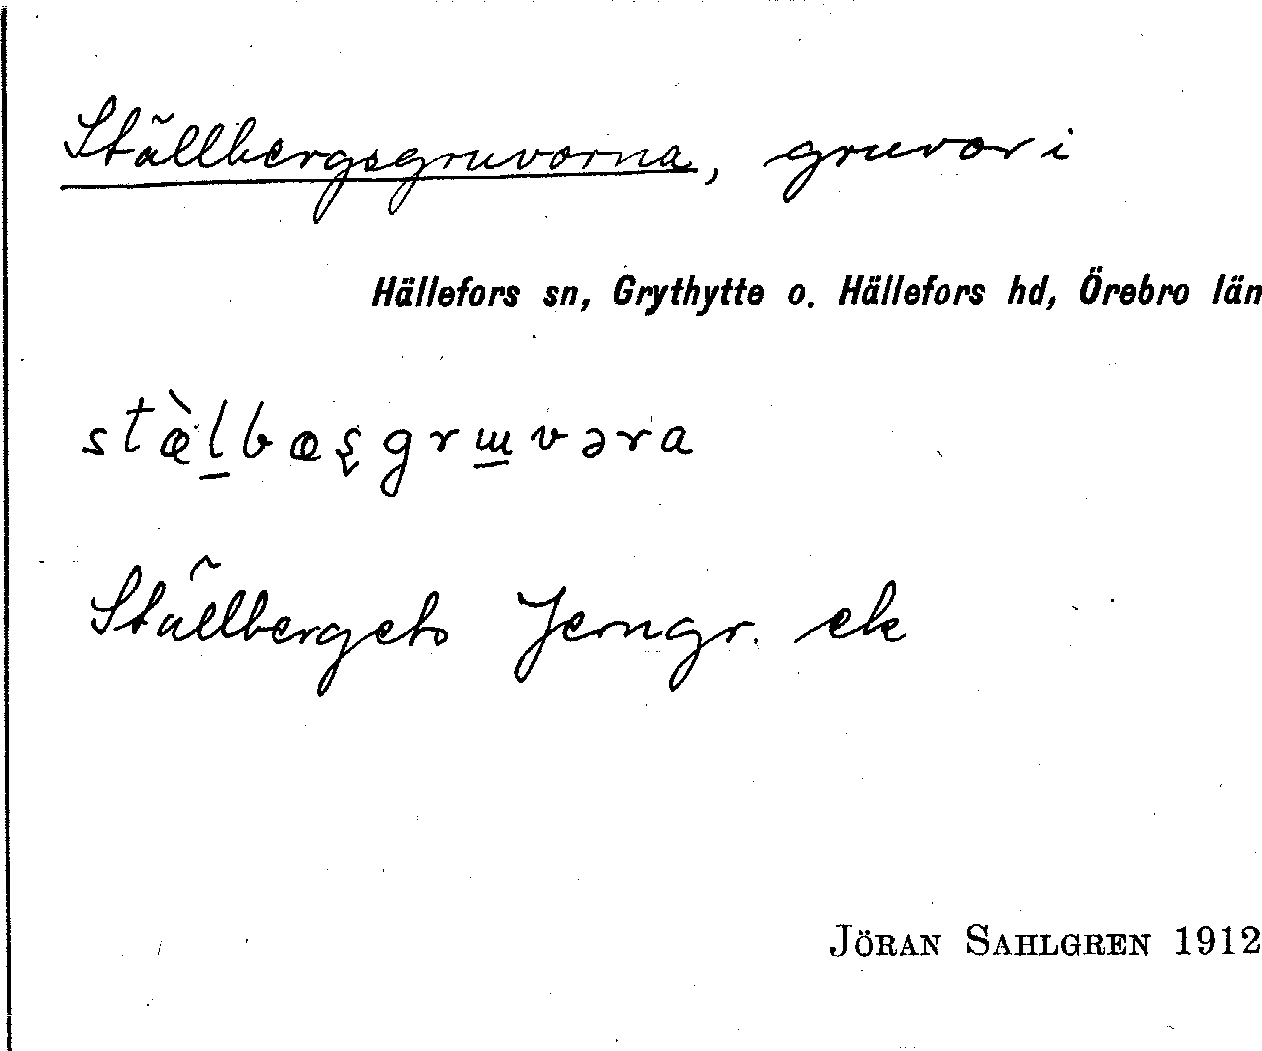 Ställbergsgruvorna, gruvor i
Hällefors sn, Grythytte o. Hällefors hd, Örebro län
stæ̀l̠bæʂgrɯ̠vəra
Ställbergets Jerngr. ek
JÖRAN SAHLGREN 1912